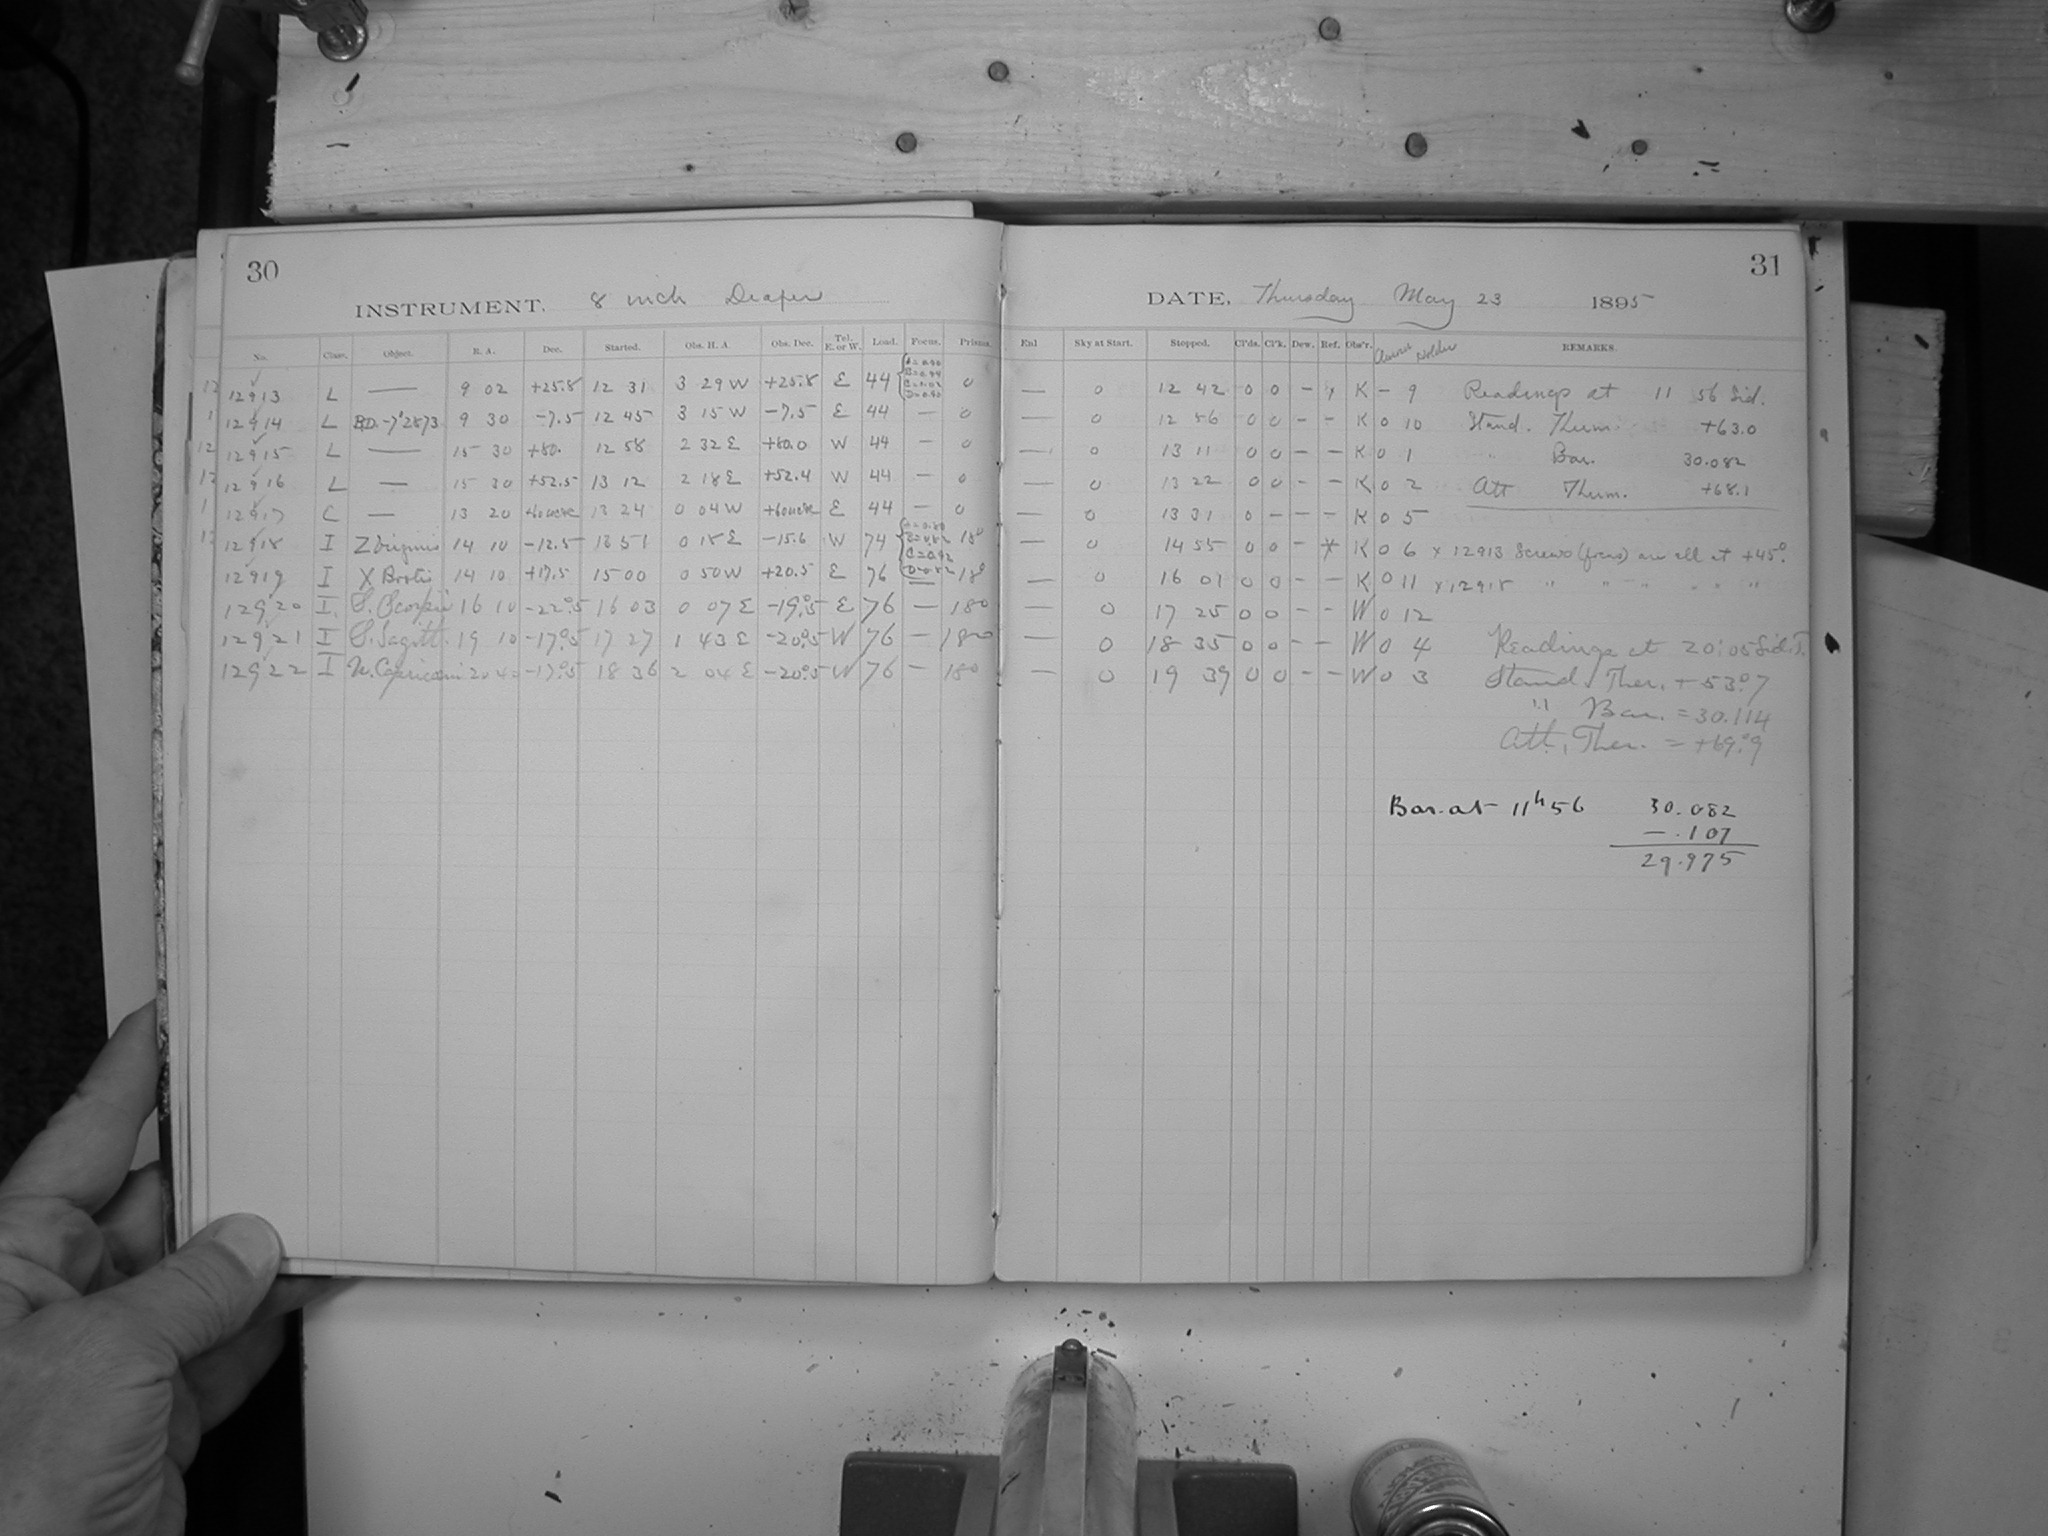 30
INSTRUMENT, 8 inch Draper
No. Class. Object. R. A. Dec. Started. Obs. H. A. Obs. Dec. Tel. E. or W. Load. Focus. Prisms.
12913 L — 9 02 +25.8 12 31 3 29 W +25.8 E 44 0
12914 L B.D. -7°2873 9 30 -7.5 12 45 3 15 W -7.5 E 44 — 0
12915 L — 15 30 +80. 12 58 2 32 E +80.0 W 44 — 0
12916 L — 15 30 +52.5 13 12 2 18 E +52.4 W 44 — 0
12917 C — 13 20 13 24 0 04 W E 44 — 0
12918 I Z Virginis 14 10 -12.5 13 51 0 18 E -15.6 W 74 18°
12919 I X Bootis 14 10 +17.5 15 00 0 50 W +20.5 E 76 — 18°
12920 I S. Scorpii 16 10 -22°.5 16 03 0 07 E -19°.5 E 76 — 180
12921 I S. Sagitt. 19 10 -17°.5 17 27 1 43 E -20°.5 W 76 — 180
12922 I 20 40 -17°.5 18 36 2 04 E -20°.5 W 76 — 180
31
DATE, Thursday May 23 1895
Enl Sky at Start. Stopped. Cl'ds. Cl'k. Dew. Ref. Obs'r. Holder REMARKS.
— 0 12 42 0 0 — K — 9 Readings at 11 56 Sid.
— 0 12 56 0 0 — — K 0 10 Stand. Therm. +63.0
— 0 13 11 0 0 — — K 0 1 " Bar. 30.082
— 0 13 22 0 0 — — K 0 2 Att Therm. +68.1
— 0 13 31 0 — — — K 0 5
— 0 14 55 0 0 — * K 0 6 x 12913 Screws (focus) are all at +45°.
— 0 16 01 0 0 — — K 0 11 x 12918 " " " " " "
— 0 17 25 0 0 — — W 0 12
— 0 18 35 0 0 — — W 0 4 Readings at 20:05 Sid. T.
— 0 19 39 0 0 — — W 0 3 Stand. Ther. +53°.7
" Bar. = 30.114
Att. Ther. = +69°.9
Bar. at 11h 56 30.082
— .107
29.975